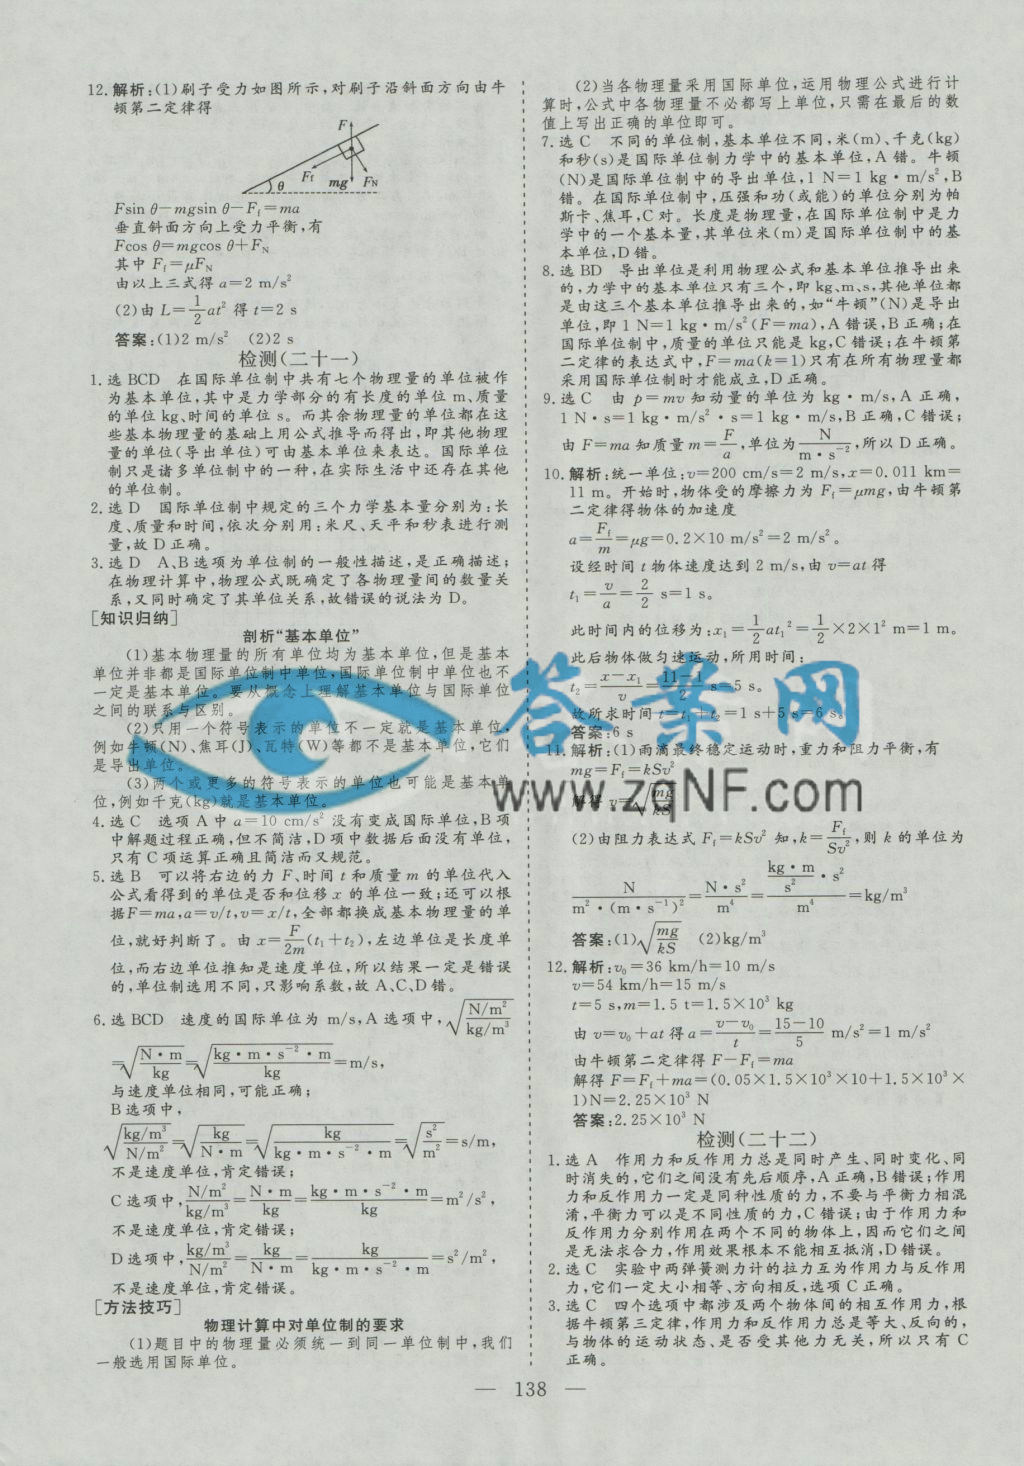 12. 解析:(1)刷子受力如图所示,对刷子沿斜面方向由牛
顿第二定律得
F
Ff
θ
mg
FN
Fsin θ-mgsin θ-Ff=ma
垂直斜面方向上受力平衡,有
Fcos θ=mgcos θ+FN
其中 Ff=μFN
由以上三式得 a=2 m/s²
(2)由 L=1/2at² 得 t=2 s
答案:(1)2 m/s² (2)2 s
检测(二十一)
1. 选 BCD 在国际单位制中共有七个物理量的单位被作
为基本单位,其中是力学部分的有长度的单位 m、质量
的单位 kg、时间的单位 s。而其余物理量的单位都在这
些基本物理量的基础上用公式推导而得出,即其他物理
量的单位(导出单位)可由基本单位来表达。国际单位
制只是诸多单位制中的一种,在实际生活中还存在其他
的单位制。
2. 选 D 国际单位制中规定的三个力学基本量分别为:长
度、质量和时间,依次分别用:米尺、天平和秒表进行测
量,故 D 正确。
3. 选 D A、B 选项为单位制的一般性描述,是正确描述;
在物理计算中,物理公式既确定了各物理量间的数量关
系,又同时确定了其单位关系,故错误的说法为 D。
[知识归纳]
剖析“基本单位”
(1)基本物理量的所有单位均为基本单位,但是基本
单位并非都是国际单位制中单位,国际单位制中单位也不
一定是基本单位。要从概念上理解基本单位与国际单位
之间的联系与区别。
(2)只用一个符号表示的单位不一定就是基本单位,
例如牛顿(N)、焦耳(J)、瓦特(W)等都不是基本单位,它们
是导出单位。
(3)两个或更多的符号表示的单位也可能是基本单
位,例如千克(kg)就是基本单位。
4. 选 C 选项 A 中 a=10 cm/s² 没有变成国际单位,B 项
中解题过程正确,但不简洁,D 项中数据后面没有单位,
只有 C 项运算正确且简洁而又规范。
5. 选 B 可以将右边的力 F、时间 t 和质量 m 的单位代入
公式看得到的单位是否和位移 x 的单位一致;还可以根
据 F=ma,a=v/t,v=x/t,全部都换成基本物理量的单
位,就好判断了。由 x=F/2m(t₁+t₂),左边单位是长度单
位,而右边单位推知是速度单位,所以结果一定是错误
的,单位制选用不同,只影响系数,故 A、C、D 错。
6. 选 BCD 速度的国际单位为 m/s,A 选项中,√(N/m²/kg/m³)
=√(N·m/kg)=√(kg·m·s⁻²·m/kg)=m/s,
与速度单位相同,可能正确;
B 选项中,
√(kg/m³/N/m²)=√(kg/N·m)=√(kg/kg·m·s⁻²·m)=√(s²/m²)=s/m,
不是速度单位,肯定错误;
C 选项中,N/m²/kg/m³=N·m/kg=kg·m·s⁻²·m/kg=m²/s²,
不是速度单位,肯定错误;
D 选项中,kg/m³/N/m²=kg/N·m=kg/kg·m·s⁻²·m=s²/m²,
不是速度单位,肯定错误。
[方法技巧]
物理计算中对单位制的要求
(1)题目中的物理量必须统一到同一单位制中,我们
一般选用国际单位。
(2)当各物理量采用国际单位,运用物理公式进行计
算时,公式中各物理量不必都写上单位,只需在最后的数
值上写出正确的单位即可。
7. 选 C 不同的单位制,基本单位不同,米(m)、千克(kg)
和秒(s)是国际单位制力学中的基本单位,A 错。牛顿
(N)是国际单位制中的导出单位,1 N=1 kg·m/s²,B
错。在国际单位制中,压强和功(或能)的单位分别为帕
斯卡、焦耳,C 对。长度是物理量,在国际单位制中是力
学中的一个基本量,其单位米(m)是国际单位制中的基
本单位,D 错。
8. 选 BD 导出单位是利用物理公式和基本单位推导出来
的,力学中的基本单位只有三个,即 kg、m、s,其他单位都
是由这三个基本单位推导出来的,如“牛顿”(N)是导出
单位,即 1 N=1 kg·m/s²(F=ma),A 错误,B 正确;在
国际单位制中,质量的单位只能是 kg,C 错误;在牛顿第
二定律的表达式中,F=ma(k=1)只有在所有物理量都
采用国际单位制时才能成立,D 正确。
9. 选 C 由 p=mv 知动量的单位为 kg·m/s,A 正确,
1 N·s=1 kg·m/s²·s=1 kg·m/s,B 正确,C 错误;
由 F=ma 知质量 m=F/a,单位为N/m·s⁻²,所以 D 正确。
10. 解析:统一单位:v=200 cm/s=2 m/s,x=0.011 km=
11 m。开始时,物体受的摩擦力为 Ff=μmg,由牛顿第
二定律得物体的加速度
a=Ff/m=μg=0.2×10 m/s²=2 m/s²。
设经时间 t 物体速度达到 2 m/s,由 v=at 得
t₁=v/a=2/2 s=1 s。
此时间内的位移为:x₁=1/2at₁²=1/2×2×1² m=1 m。
此后物体做匀速运动,所用时间:
t₂=x-x₁/v=11-1/2 s=5 s。
故所求时间 t=t₁+t₂=1 s+5 s=6 s。
答案:6 s
11. 解析:(1)雨滴最终稳定运动时,重力和阻力平衡,有
mg=Ff=kSv²
解得 v=√(mg/kS)
(2)由阻力表达式 Ff=kSv² 知,k=Ff/Sv²,则 k 的单位为
N/m²·(m·s⁻¹)²=N·s²/m⁴=kg·m/s²·s²/m⁴=kg/m³
答案:(1)√(mg/kS) (2)kg/m³
12. 解析:v₀=36 km/h=10 m/s
v=54 km/h=15 m/s
t=5 s,m=1.5 t=1.5×10³ kg
由 v=v₀+at 得 a=v-v₀/t=15-10/5 m/s²=1 m/s²
由牛顿第二定律得 F-Ff=ma
解得 F=Ff+ma=(0.05×1.5×10³×10+1.5×10³×
1)N=2.25×10³ N
答案:2.25×10³ N
检测(二十二)
1. 选 A 作用力和反作用力总是同时产生、同时变化、同
时消失的,它们之间没有先后顺序,A 正确,B 错误;作用
力和反作用力一定是同种性质的力,不要与平衡力相混
淆,平衡力可以是不同性质的力,C 错误;由于作用力和
反作用力分别作用在两个不同的物体上,因而它们之间
是无法求合力,作用效果根本不能相互抵消,D 错误。
2. 选 C 实验中两弹簧测力计的拉力互为作用力与反作用
力,它们一定大小相等、方向相反,选项 C 正确。
3. 选 C 四个选项中都涉及两个物体间的相互作用力,根
据牛顿第三定律,作用力和反作用力总是等大、反向的,
与物体的运动状态、是否受其他力无关,所以只有 C
正确。
— 138 —
答案网
www.zqNF.com